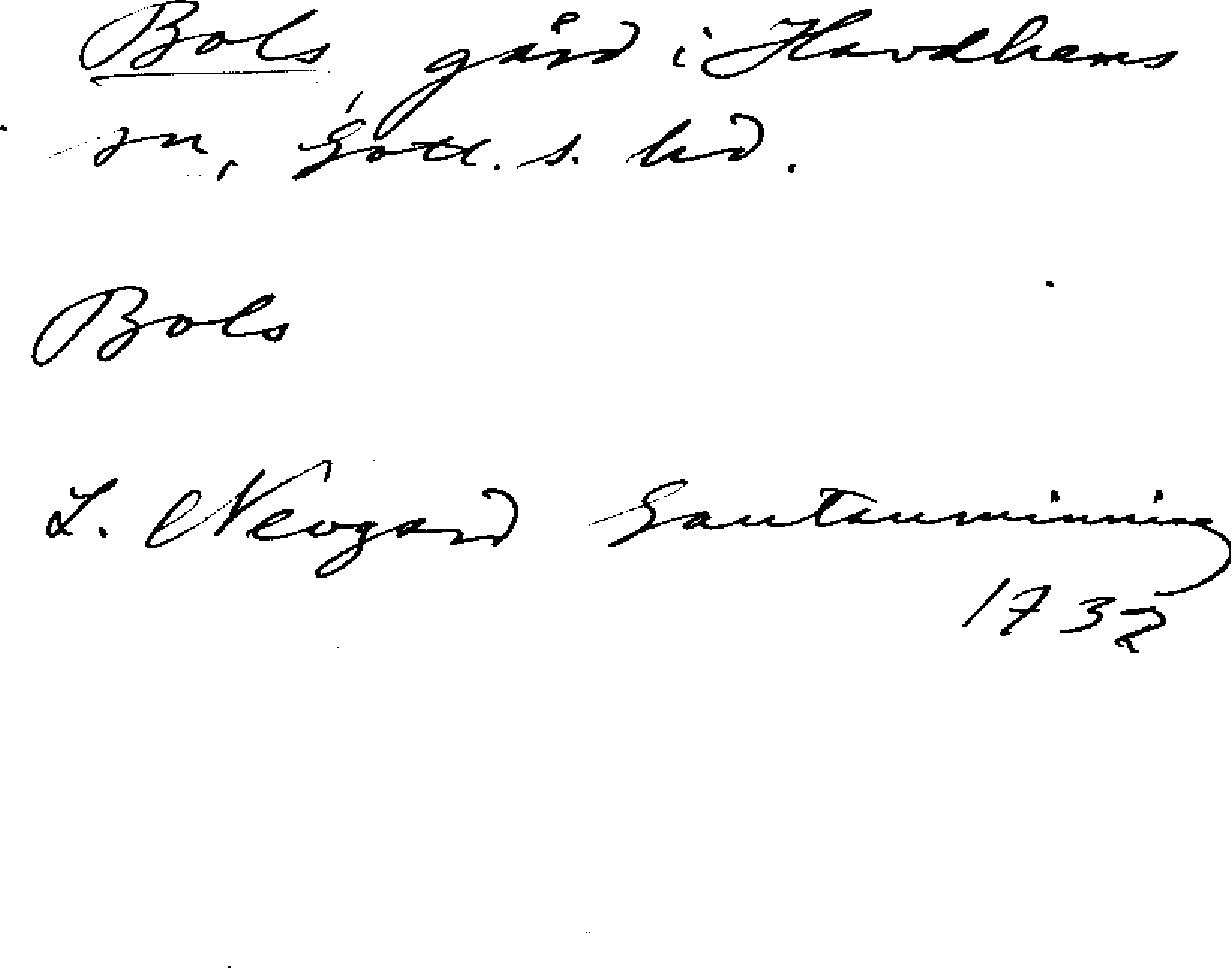 Bols, gård i Havdhems
sn, Gotl. s. hd.
Bols
L. Nevgard Gautauminning
1732